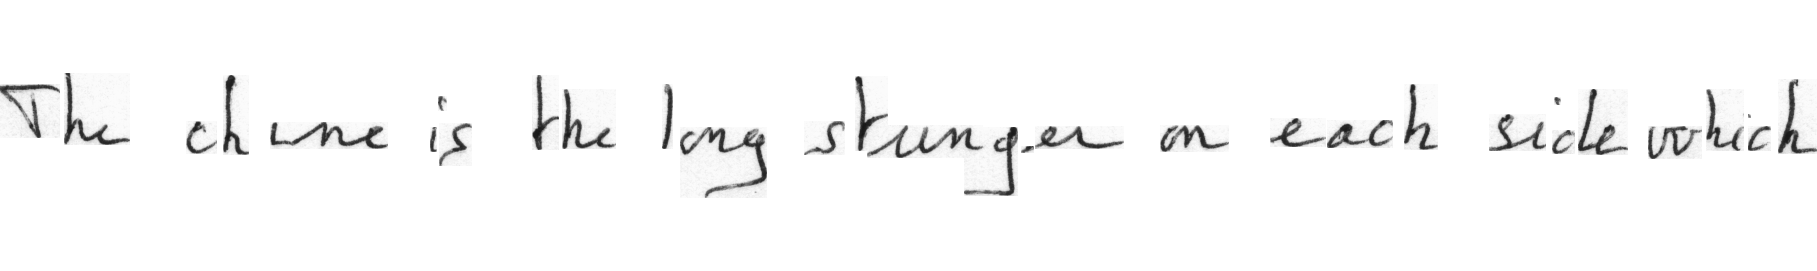 The chine is the long stringer on each side which